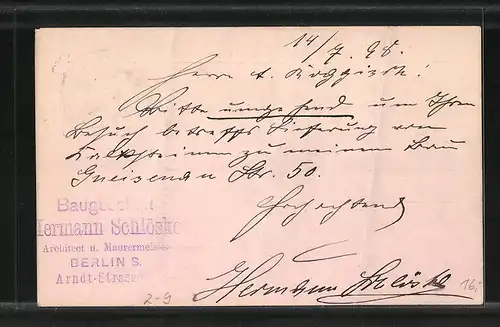 14/7.98.
Herrn A.
Bitte umgehend um Ihren
Besuch betreffs Lieferung von
Kalksteinen zu meinem Bau
Gneisenau Str. 50.
Hochachtend
Hermann Schlöske
Baugeschäft
Hermann Schlöske
Architect u. Maurermeister
BERLIN S.
Arndt-Strasse
2-9
16,-